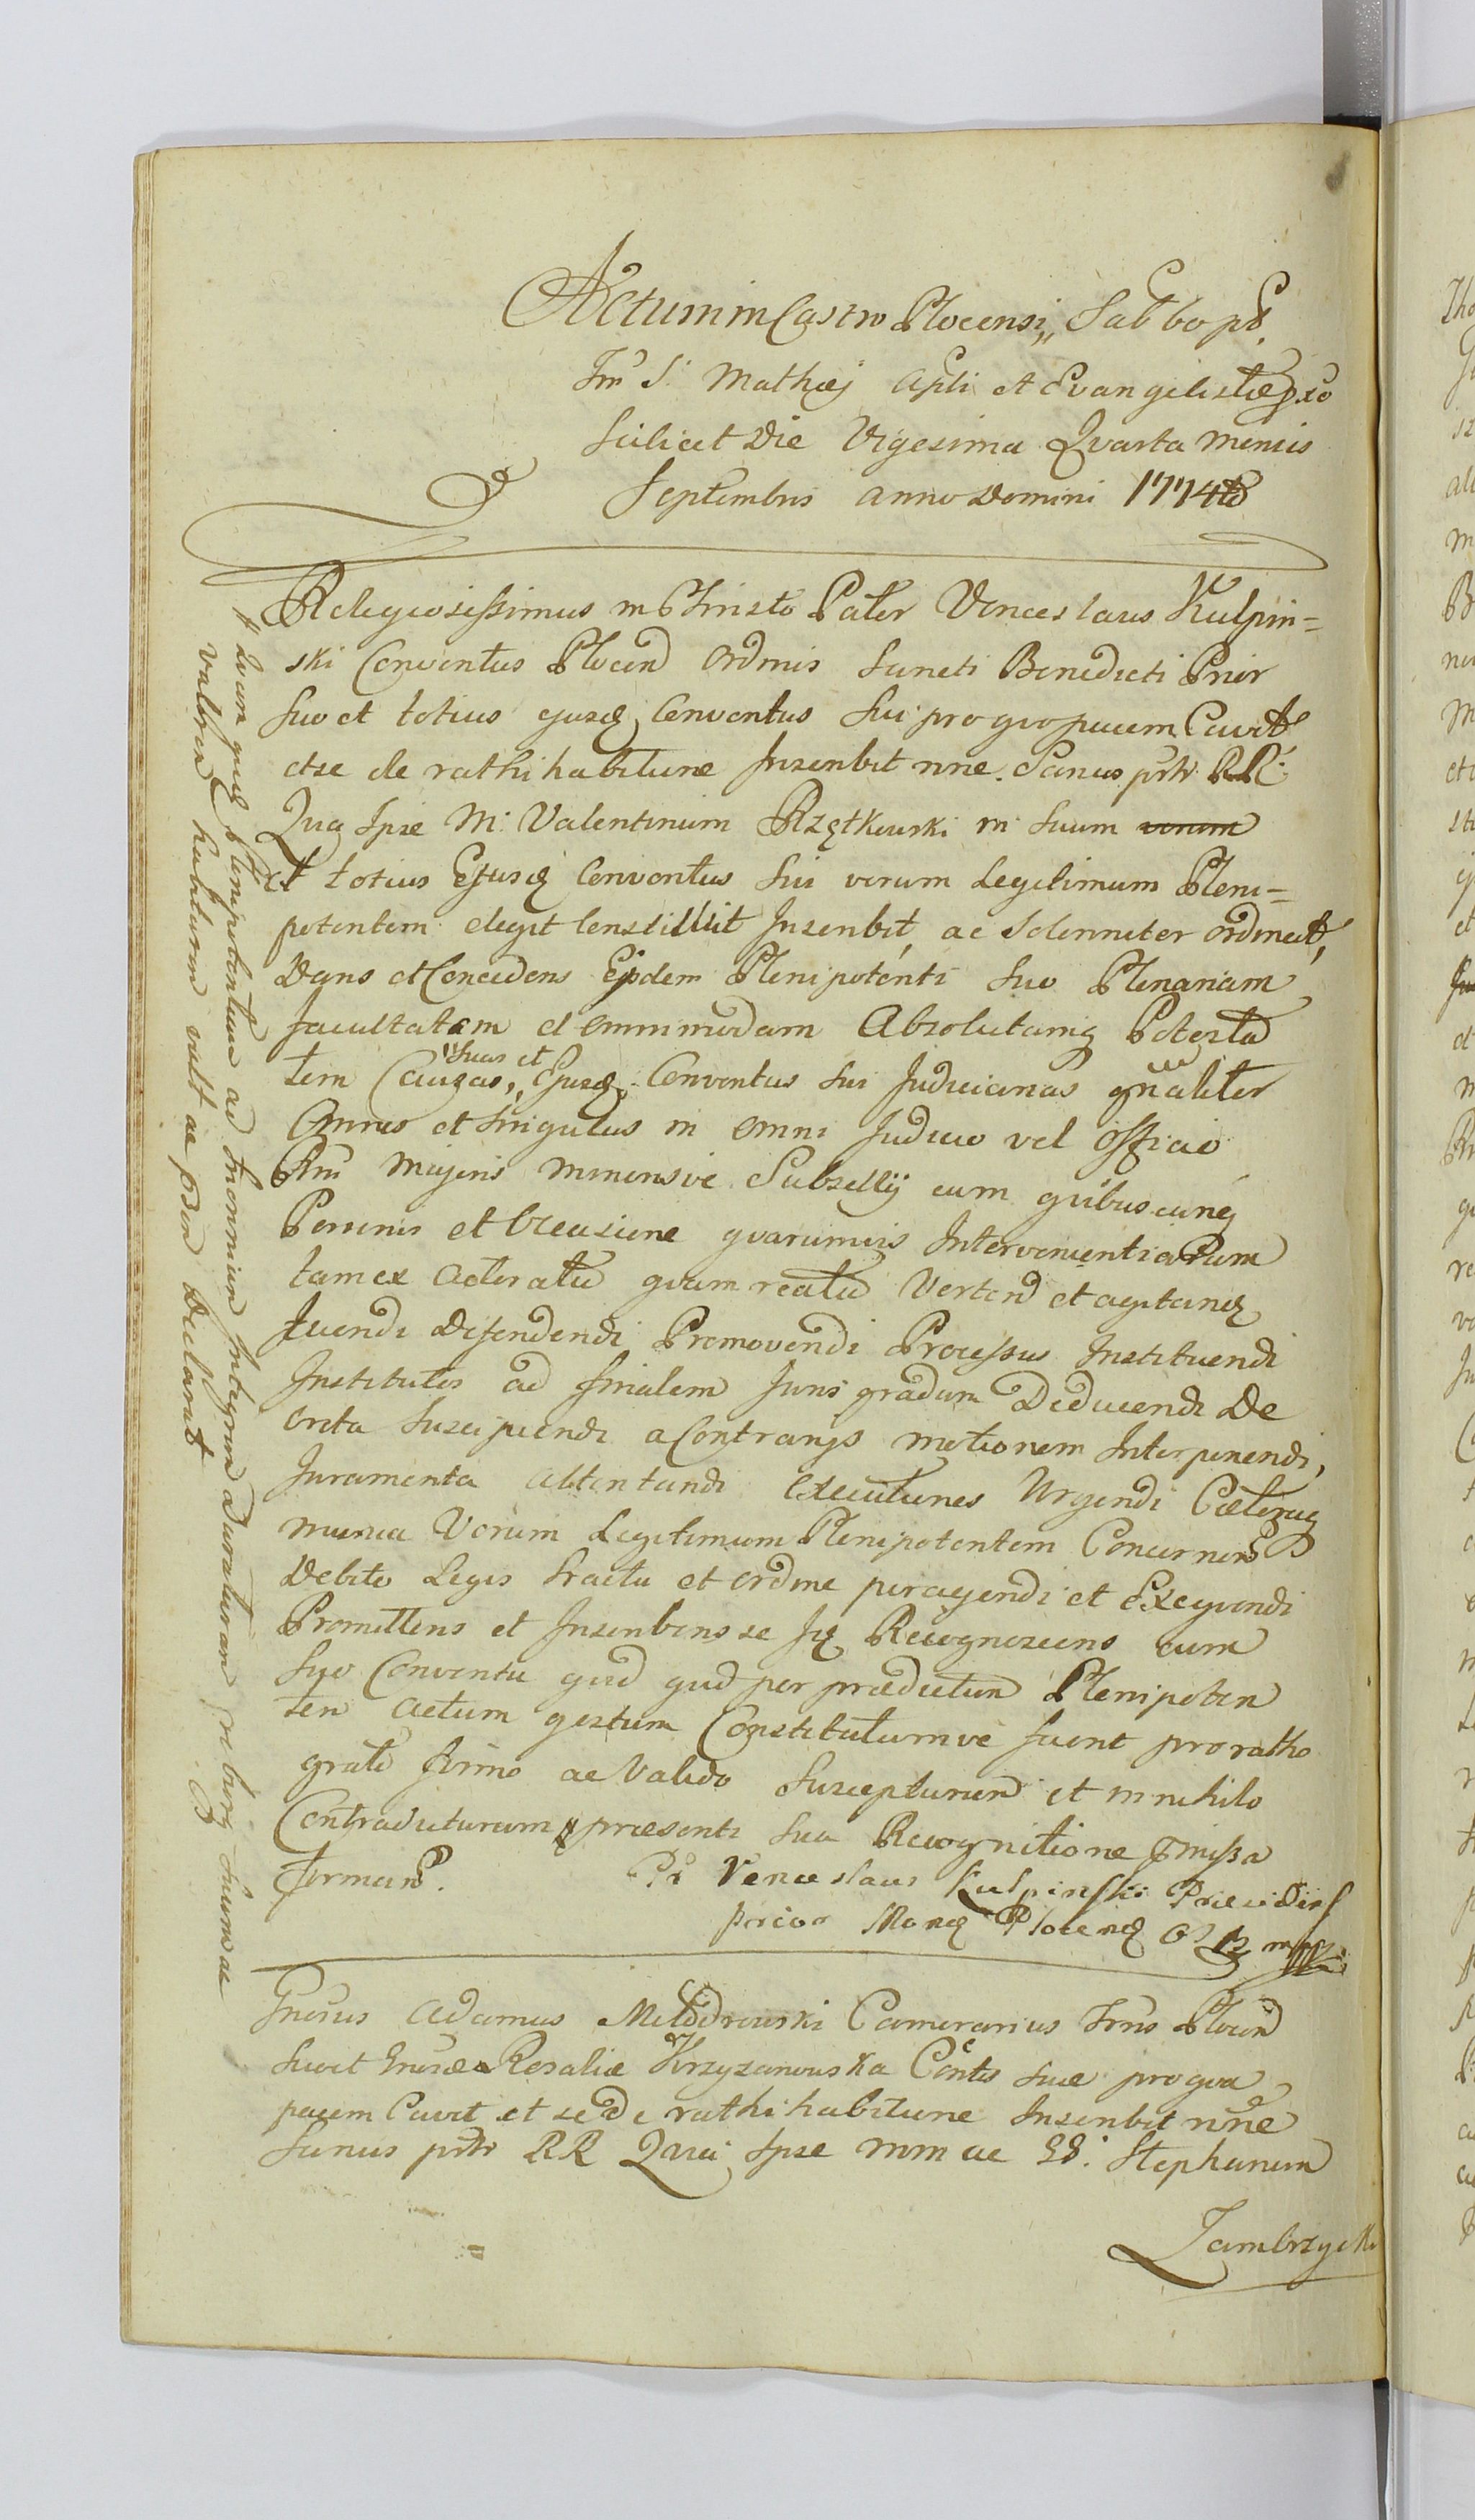 Actum in Castro Plocensi„ Sabbo pt
Fm S. Mathæj Apli et Evangelistæ pxo
Scilicet Die Vigesima Qvarta Mensis
Septembris Anno Domini 1774to
Religiosissimus in Christo Pater Venceslaus Kulpin=
ski Conventus Plocen Ordinis Sancti Benedicti Prior
Suo et totius ejusq Conventus Sui pro qvo pacem Cavit
et se de rathihabitione Inscribit nne. Sanus prtr RR.
Qua Ipse M: Valentinum Rzętkowski in Suum verum
Et totius Ejusq Conventus Sui verum Legitimum Pleni=
potentem elegit Constituit Inscribit, ac Solenniter Ordinat,
Dans et Concedens Ejdem Plenipotenti Suo Plenariam
Facultatem et Omnimodam Absolutamq Potesta
tem Causas, „Suas et Ejusq Conventus Sui Judiciarias gnaliter
Omnes et Singulas in Omni Judicio vel Officio
Rni Majoris Minorisve Subsellij cum qvibuscunq
Personis et Occasione qvarumvis Intervenientiarum
tam ex Actoratu qvam reatu Verten et agitanq
Jvendi Defendendi Promovendi Processus Instituendi
Institutos ad finalem Juris gradum Deducendi De
creta Suscipiendi a Contrarijs motionem Interponendi,
Juramenta Attentandi Executiones Urgendi Cæteraq
munia Verum Legitimum Plenipotentem Concernen
Debito Legis tractu et Ordine peragendi et Exeqvendi
Promittens et Inscribens se Jq Recognoscens cum
Suo Conventu qvid qvid per prædictum Plenipoten
ten Actum gestum Constitutumve fuerit pro ratho
grato firmo ac Valido Suscepturum et in nihilo
Contradicturum # præsenti Sua Recognitione missa
formans.
Pr Venceslaus Kulpinski Præsidens
prior Monq Plocenq O S B mpp
# Quam qvidem Plenipotentiam ad Triennium Integrum Duraturam roburq Suum ac
valorem habituram vult ac pson Declarat
Gnosus Adamus Młodrowski Camerarius Trrus Plocen
Suo et Gnosæ Rosaliæ Krzyzanowska Contis Suæ pro qva
pacem Cavit et se de rathihabitione Inscribit nne
Sanus prtr RR Qvia Ipse mm ac Gd. Stephanum
Zambrzycki